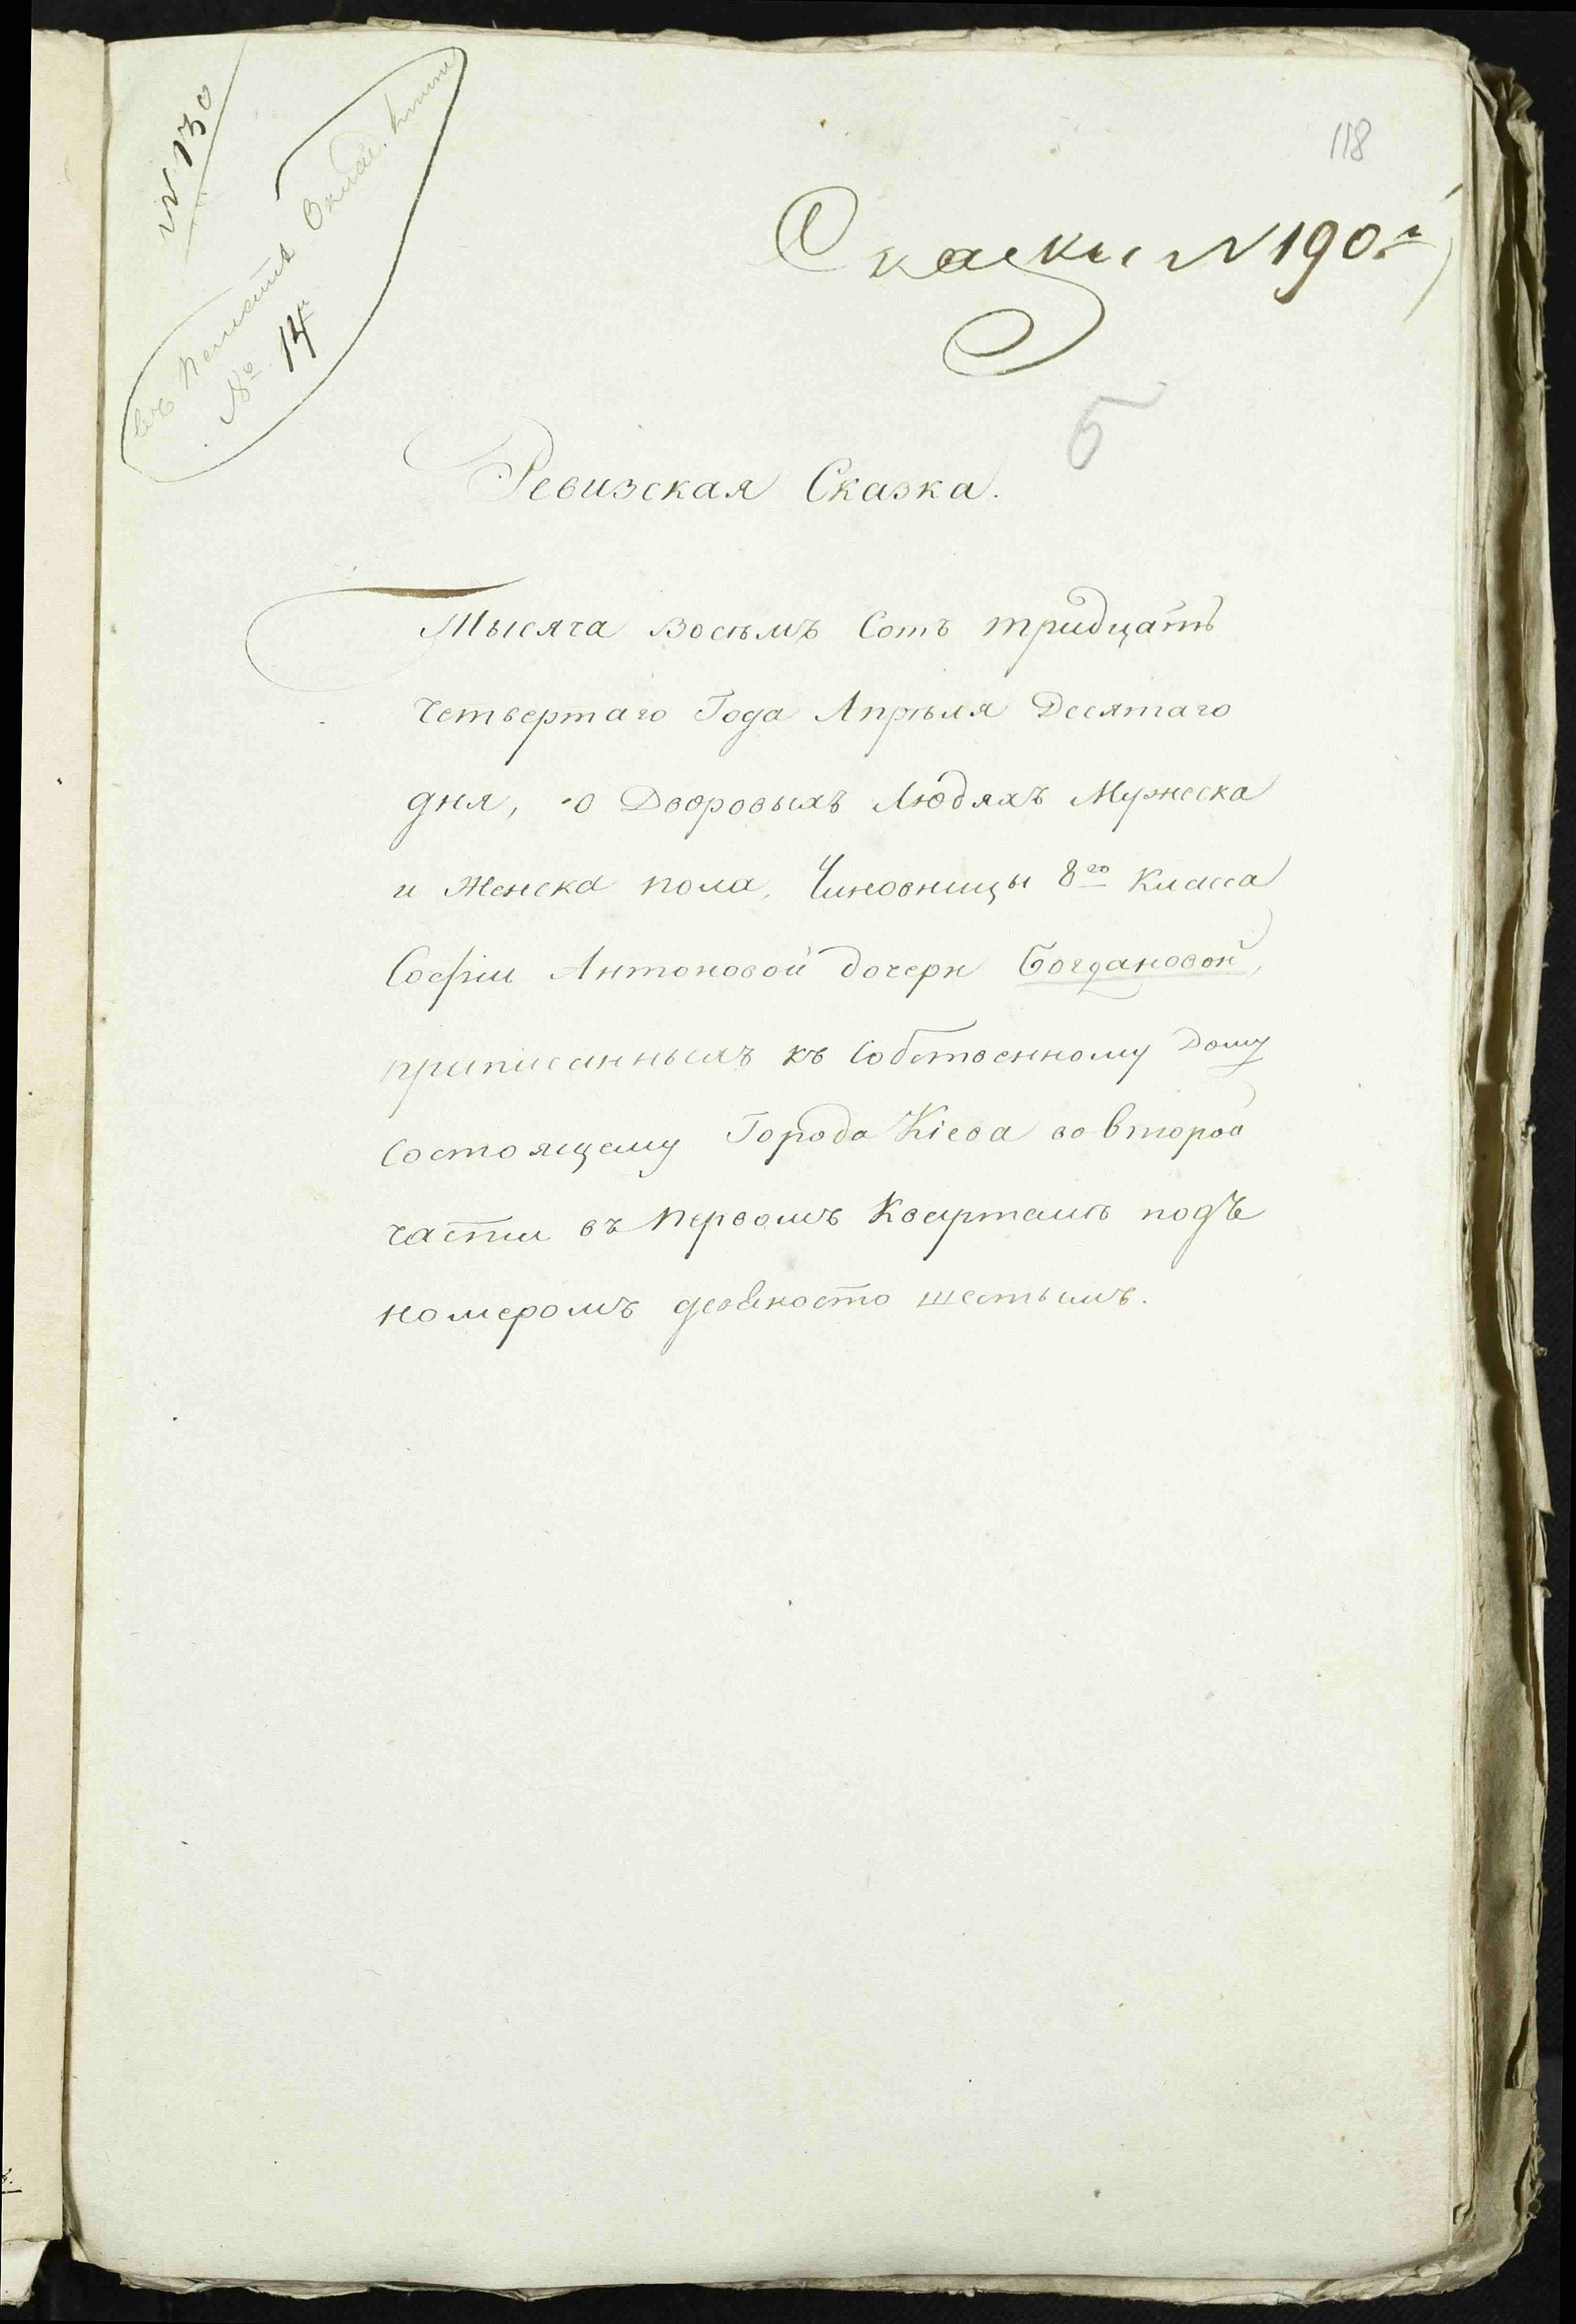 N 130
Оклад. книги
№ 14
118
Скаски N 190й
Б
Ревизская Сказка.
Тысяча Восемъ Сотъ тридцать
Четвертаго Года Апрѣля Десятаго
дня, о Дворовыхъ Людяхъ Мужеска
и Женска пола, Чиновницы 8го Класса
Софіи Антоновой дочери Богдановой,
приписанныхъ къ Собственному Дому
Состоящему Города Кіева во второй
части въ первомъ Кварталѣ подъ
номеромъ девяносто шестымъ.